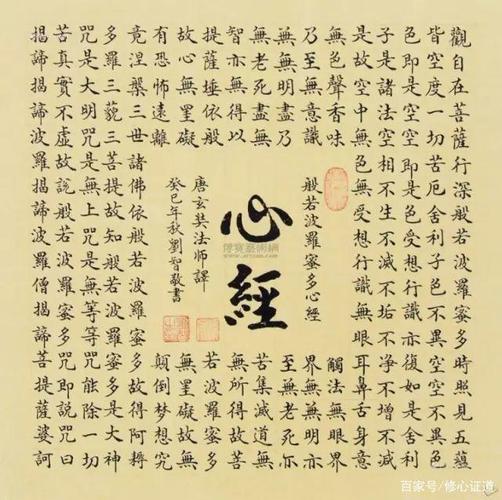 觀自在菩薩行深般若波羅蜜多時照見五蘊
皆空度一切苦厄舍利子色不異空空不異色
色即是空空即是色受想行識亦復如是舍利
子是諸法空相不生不滅不垢不淨不增不減
是故空中無色無受想行識無眼耳鼻舌身意
無色聲香味
觸法無眼界
乃至無意識
界無無明亦
無無明盡乃
至無老死亦
無老死盡無
苦集滅道無
智亦無得以
無所得故菩
提薩埵依般
若波羅蜜多
故心無罣礙
無罣礙故無
有恐怖遠離
顛倒夢想究
竟涅槃三世諸佛依般若波羅蜜多故得阿耨
多羅三藐三菩提故知般若波羅蜜多是大神
咒是大明咒是無上咒是無等等咒能除一切
苦真實不虛故說般若波羅蜜多咒即說咒曰
揭諦揭諦波羅揭諦波羅僧揭諦菩提薩婆訶
般若波羅蜜多心經
心經
唐玄奘法師譯
癸巳年秋劉智敬書
百家号/修心证道